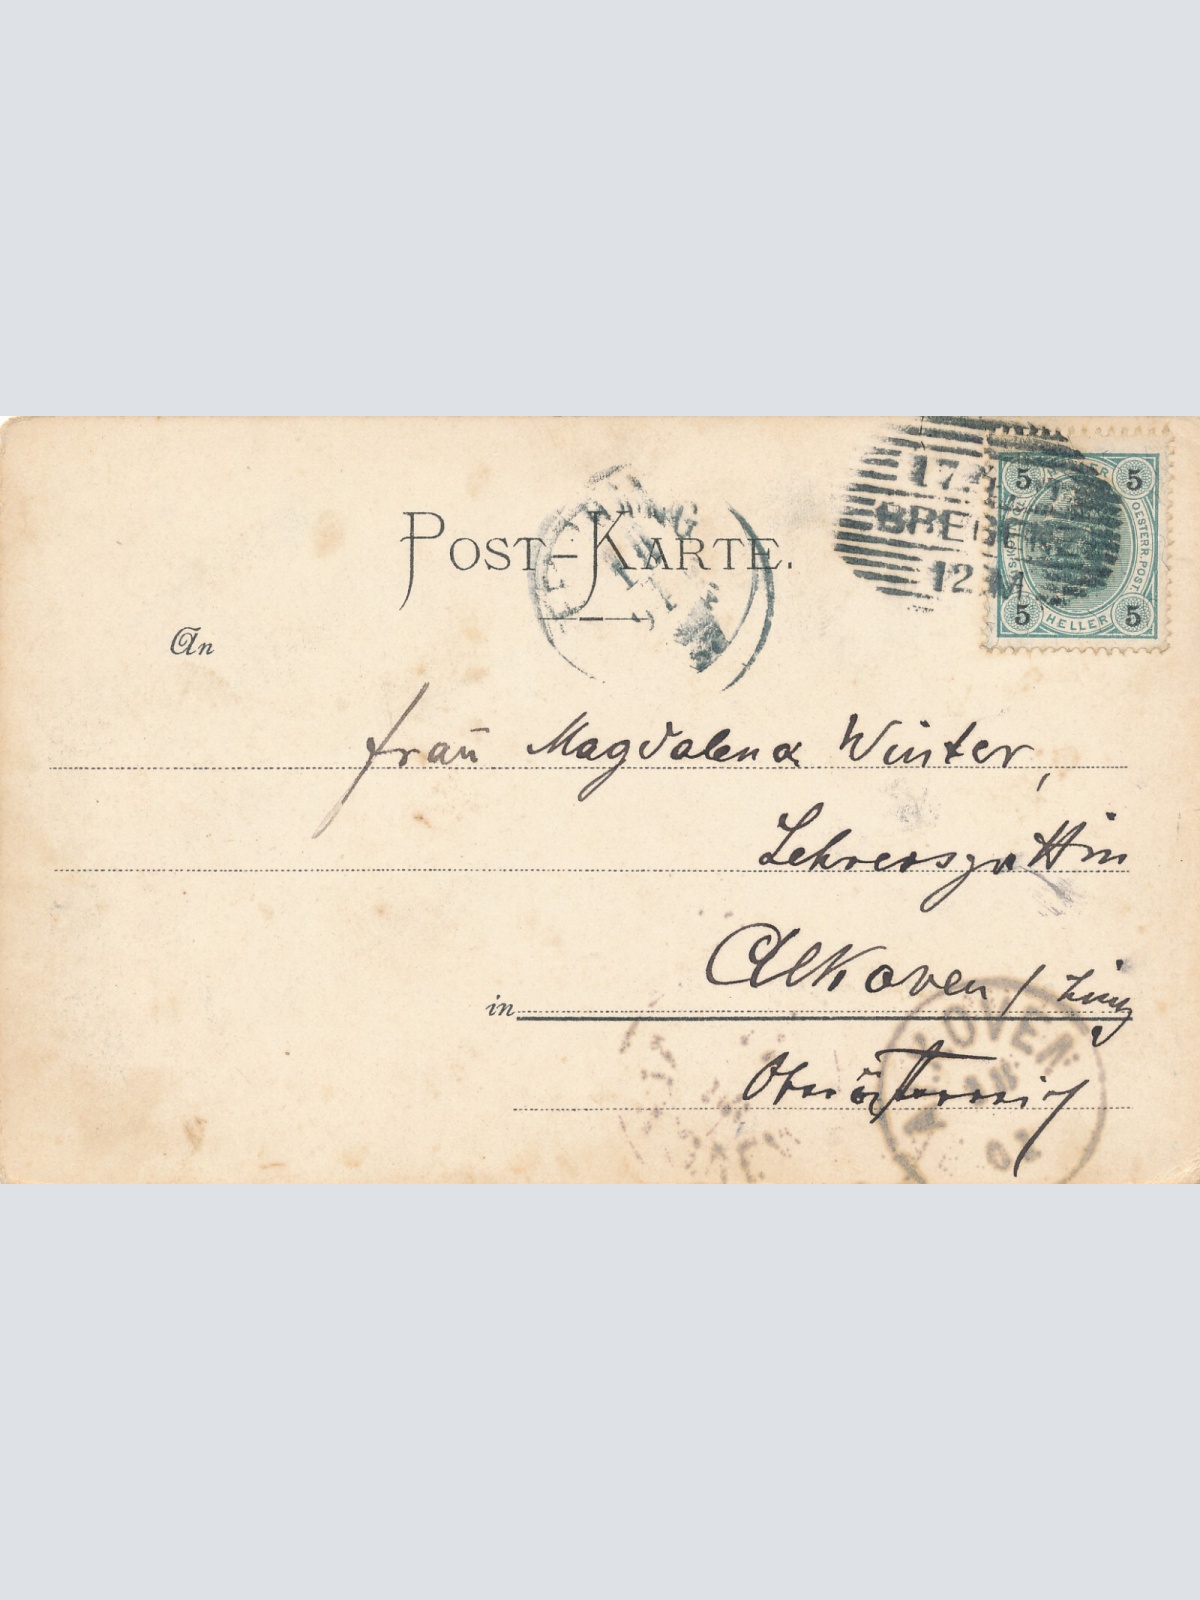 POST-KARTE.
17.4
BREG
12 M
5 5
OESTERR. POST.
5 HELLER 5
An
Frau Magdalena Winter,
Lehrersgattin
in Alkoven / Linz
Oberösterreich
ALKOVEN